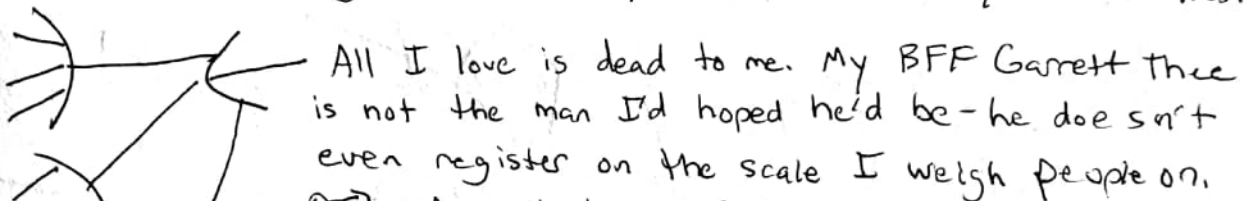 All I love is dead to me. My BFF Garrett Thee
is not the man I'd hoped he'd be - he doesn't
even register on the scale I weigh people on.